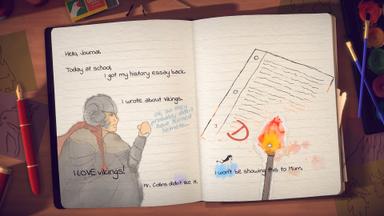 Hello, Journal.
Today at school,
I got my history essay back.
I wrote about Vikings.
I LOVE vikings!
Mr. Collins didn't like it.
D
I won't be showing this to Mum.